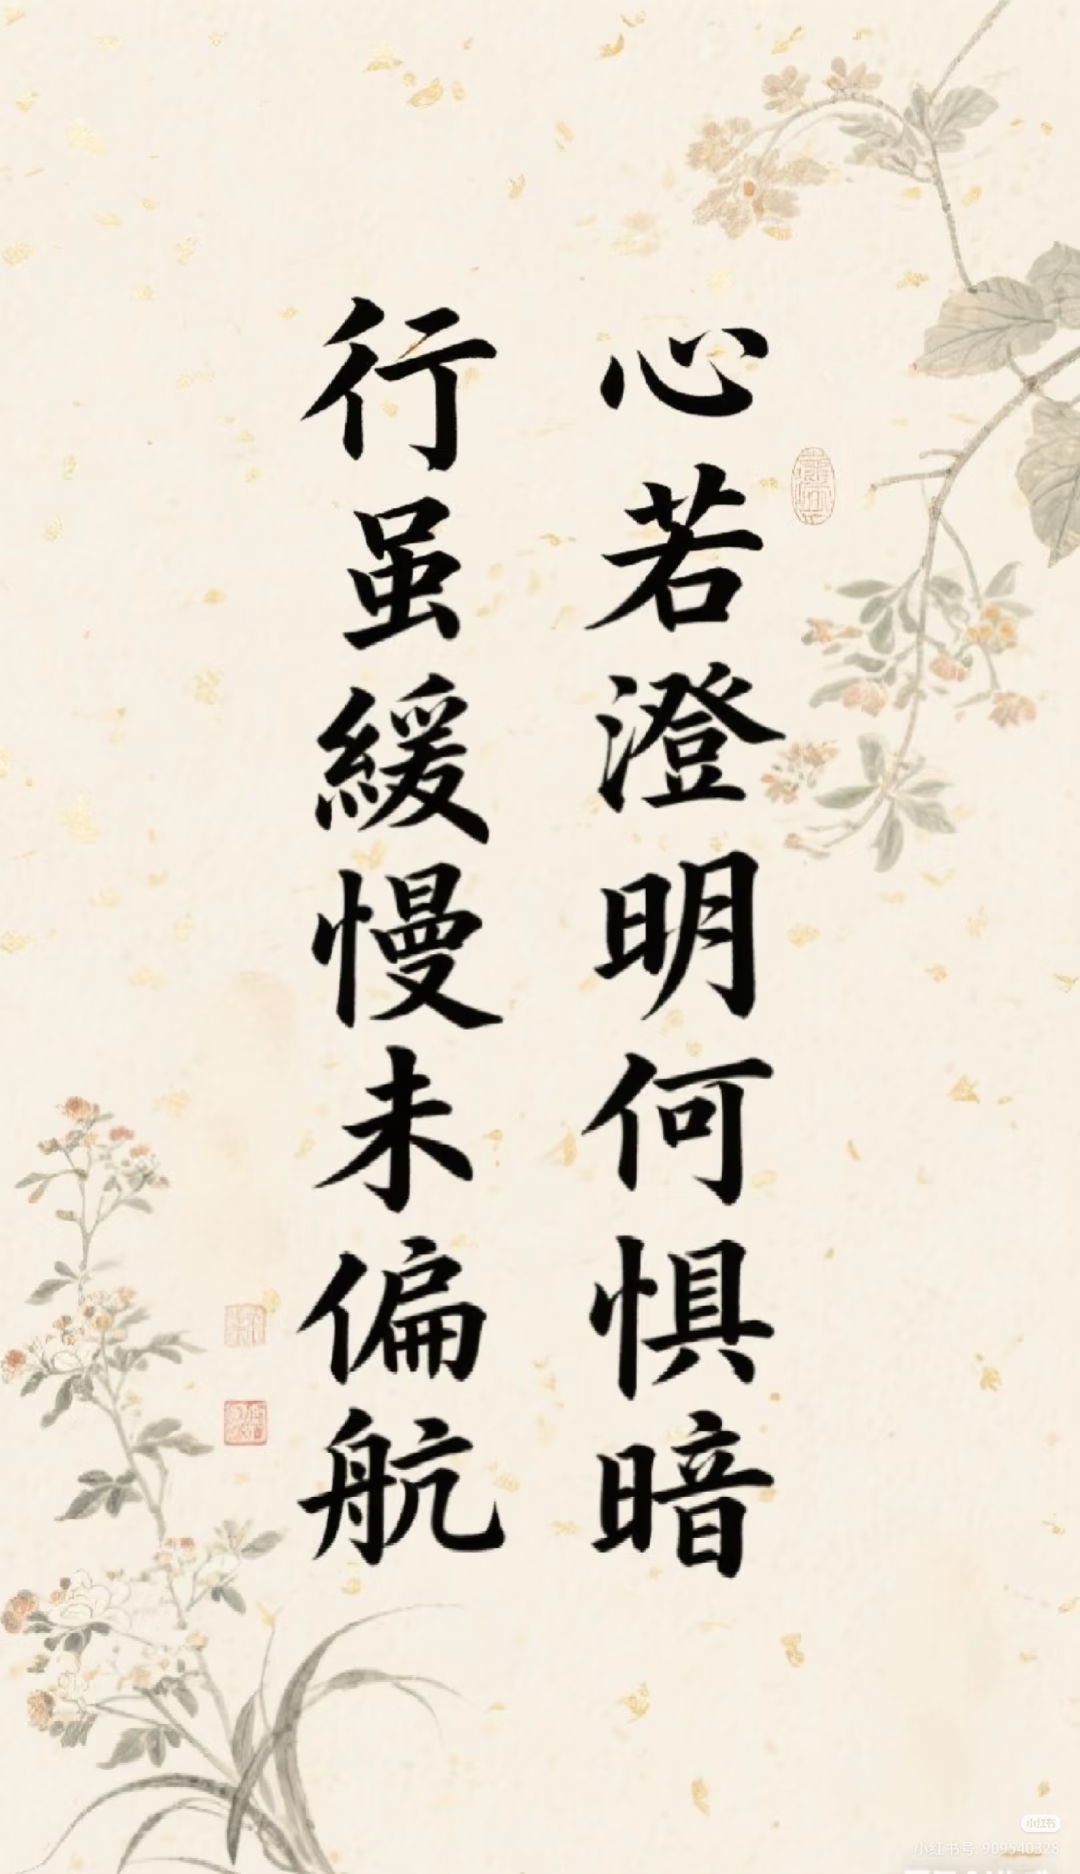 心若澄明何惧暗
行虽緩慢未偏航
小红书
小红书号 909540328